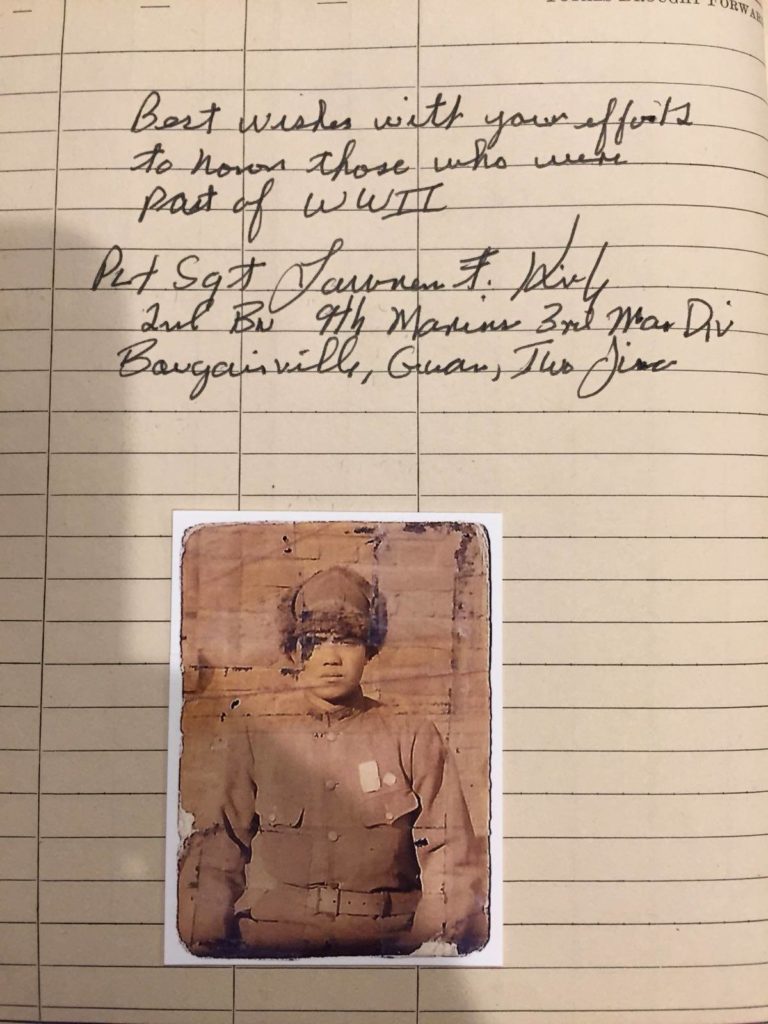 BROUGHT FORWARD
Best wishes with your efforts
to honor those who were
part of WWII
Plt Sgt Lawrence F. Kirby
2nd Bn 9th Marines 3rd Mar Div
Bougainville, Guam, Iwo Jima